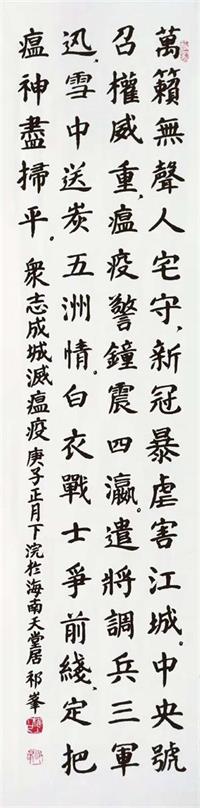 萬籟無聲人宅守、新冠暴虐害江城。中央號
召權威重、瘟疫警鐘震四瀛。遣將調兵三軍
迅、雪中送炭五洲情。白衣戰士爭前綫、定把
瘟神盡掃平。衆志成城滅瘟疫庚子正月下浣於海南天堂居祁峯